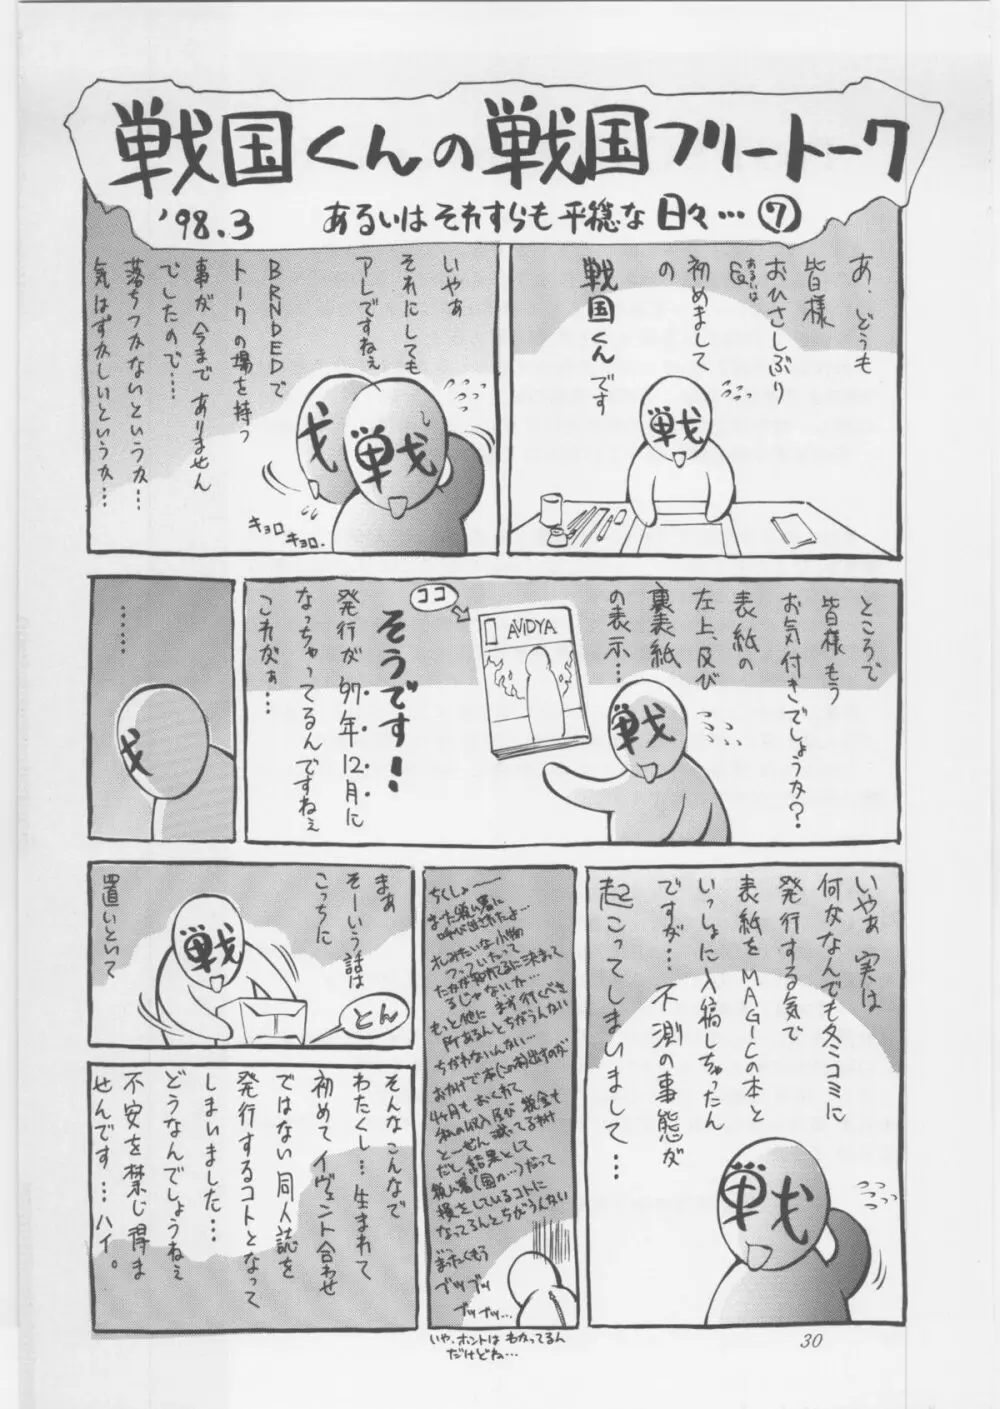 戦国くんの戦国フリートーク
'98.3
あるいはそれすらも平穏な日々…⑦
あ、どうも
皆様
おひさしぶり
&
あるいは
初めまして
の
戦国くんです
戦
いやぁ
それにしても
アレですねぇ
BRNDEDで
トークの場を持つ
事が今までありません
でしたので…
落ちつかないというか…
気はずかしいというか…
戦
戈
キョロ
キョロ。
ところで
皆様もう
お気付きでしょうか?
表紙の
左上、及び
裏表紙
の表示…
ココ
AVIDYA
戦
そうです!
発行が'97年12月に
なっちゃってるんですねぇ
これがぁ…
……
戈
いやぁ 実は
何がなんでも冬コミに
発行する気で
表紙をMAGICの本と
いっしょに入稿しちゃったん
ですが…不測の事態が
起こってしまいまして…
戦
ちくしょーー
また税ム署に
呼び出されたよ…
オレみたいな小物
つっついたって
たかが知れてるに決まって
るじゃないか…
もっと他にまず行くべき
所あるんとちがうんかい
ちがわないんかい…
おかげで本(この本)出すのが
4ヶ月もおくれて
私の収入及び税金も
とーぜん減ってるわけ
だし結果として
税ム署(国か…)だって
損をしているコトに
なってるんとちがうんかい
まったくもう
ブツブツ
ブツブツ…
いや、ホントはわかってるん
だけどね…
まぁ
そーいう話は
こっちに
置いといて
戦
とん
そんなこんなで
わたくし…生まれて
初めてイヴェント合わせ
ではない同人誌を
発行するコトとなって
しまいました…
どうなんでしょうねぇ
不安を禁じ得ま
せんです…ハイ。
30